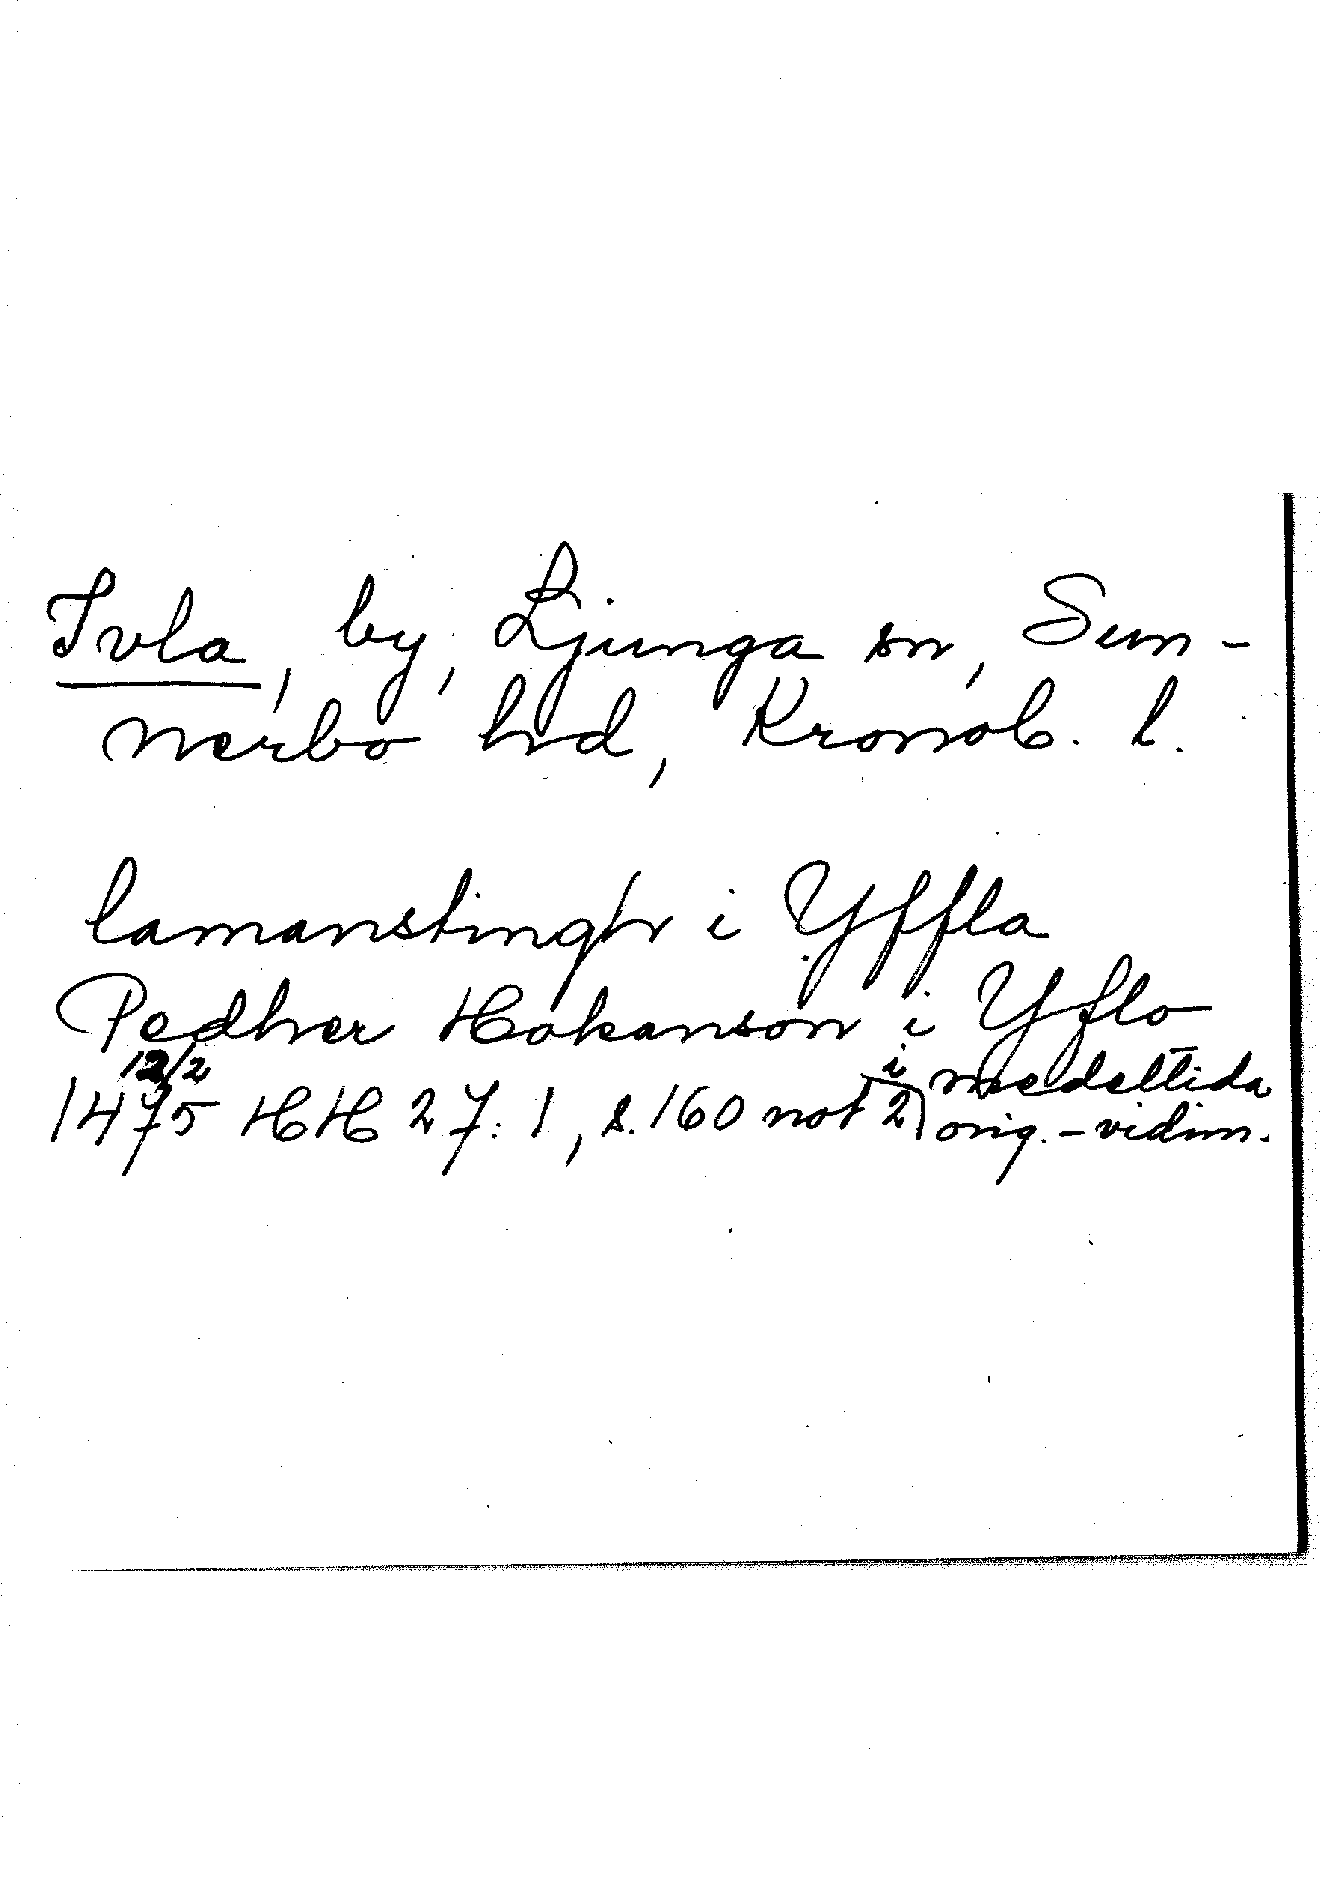 Ivla, by, Ljunga sn, Sun-
nerbo hd, Kronob. l.
lamanstingh i Yffla
Pedher Hakanson i Yflo
12/2
1475 HH 27:1, s. 160 not 2) i medeltida
orig.-vidim.